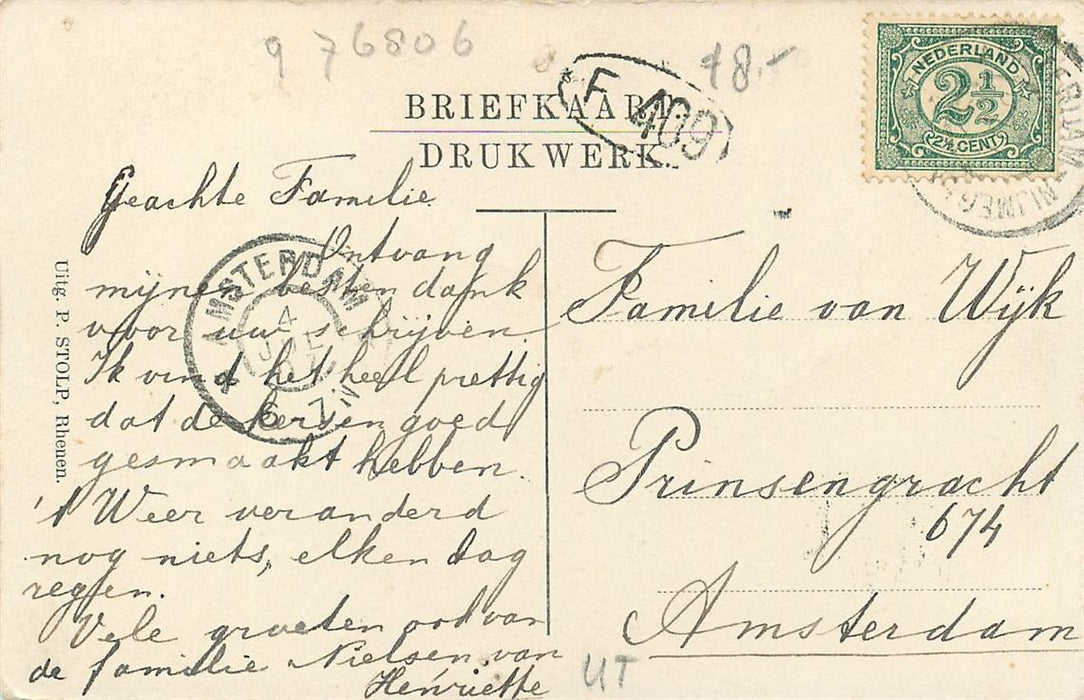 9 76806
18.-
F 409
BRIEFKAART.
DRUKWERK.
NEDERLAND
2½
2½ CENT
NIJMEG
Geachte Familie
Ontvang
mijnen besten dank
voor uw schrijven.
Ik vind het heel prettig
dat de kersen goed
gesmaakt hebben.
't Weer veranderd
nog niets, elken dag
regen.
Vele groeten ook van
de familie Nielsen, van
Henriette
AMSTERDAM
4
JUL
07
6-7 N
4
Uitg. P. STOLP, Rhenen.
Familie van Wijk
Prinsengracht
674
Amsterdam
UT